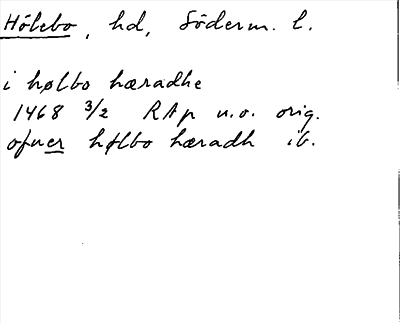 Hölebo, hd, Söderm. l.
i hølbo hæradhe
1468 3/2 RAp u.o. orig.
ofuer hølbo hæradh ib.